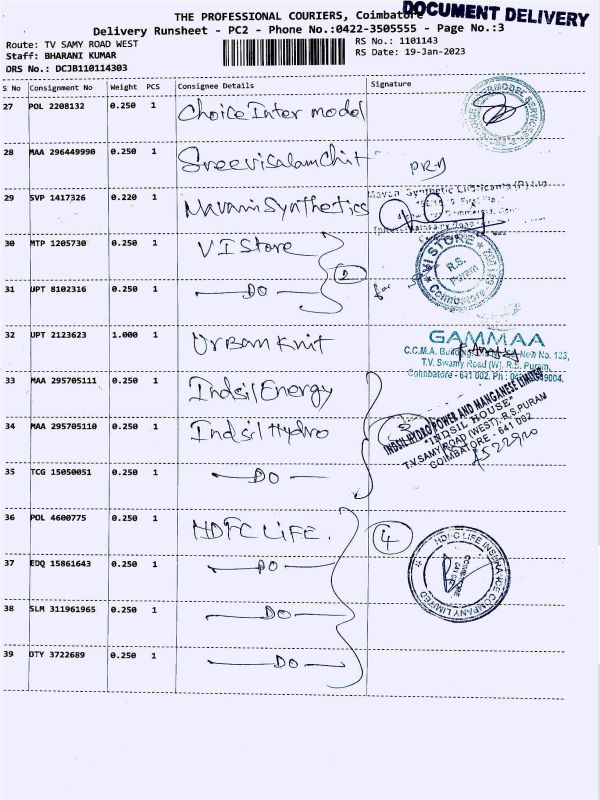 THE PROFESSIONAL COURIERS, Coimbatore
DOCUMENT DELIVERY
Delivery Runsheet - PC2 - Phone No.:0422-3505555 - Page No.:3
Route: TV SAMY ROAD WEST
RS No.: 1101143
Staff: BHARANI KUMAR
RS Date: 19-Jan-2023
DRS No.: DCJB110114303
S No Consignment No Weight PCS Consignee Details Signature
27 POL 2208132 0.250 1 Choice Inter model
28 MAA 296449990 0.250 1 Sreevisalam Chit
29 SVP 1417326 0.220 1 Mavani Synthetics
30 MTP 1205730 0.250 1 VI Store
2
VI STORE
R.S. Puram
Coimbatore
31 UPT 8102316 0.250 1 DO
for
32 UPT 2123623 1.000 1 Urban Knit
GAMMAA
C.C.M.A. Building New No. 133,
T.V. Swamy Road (W), R.S. Puram,
Coimbatore - 641 002. Ph :
33 MAA 295705111 0.250 1 Indsil Energy
34 MAA 295705110 0.250 1 Indsil Hydro
3
INDSIL HYDRO POWER AND MANGANESE LIMITED
"INDSIL HOUSE"
T.V.SAMY ROAD (WEST), R.S.PURAM
COIMBATORE - 641 002
35 TCG 15050051 0.250 1 DO
36 POL 4600775 0.250 1 HDFC LIFE.
4
HDFC LIFE INSURANCE COMPANY LIMITED
37 EDQ 15861643 0.250 1 DO
38 SLM 311961965 0.250 1 DO
39 DTY 3722689 0.250 1 DO